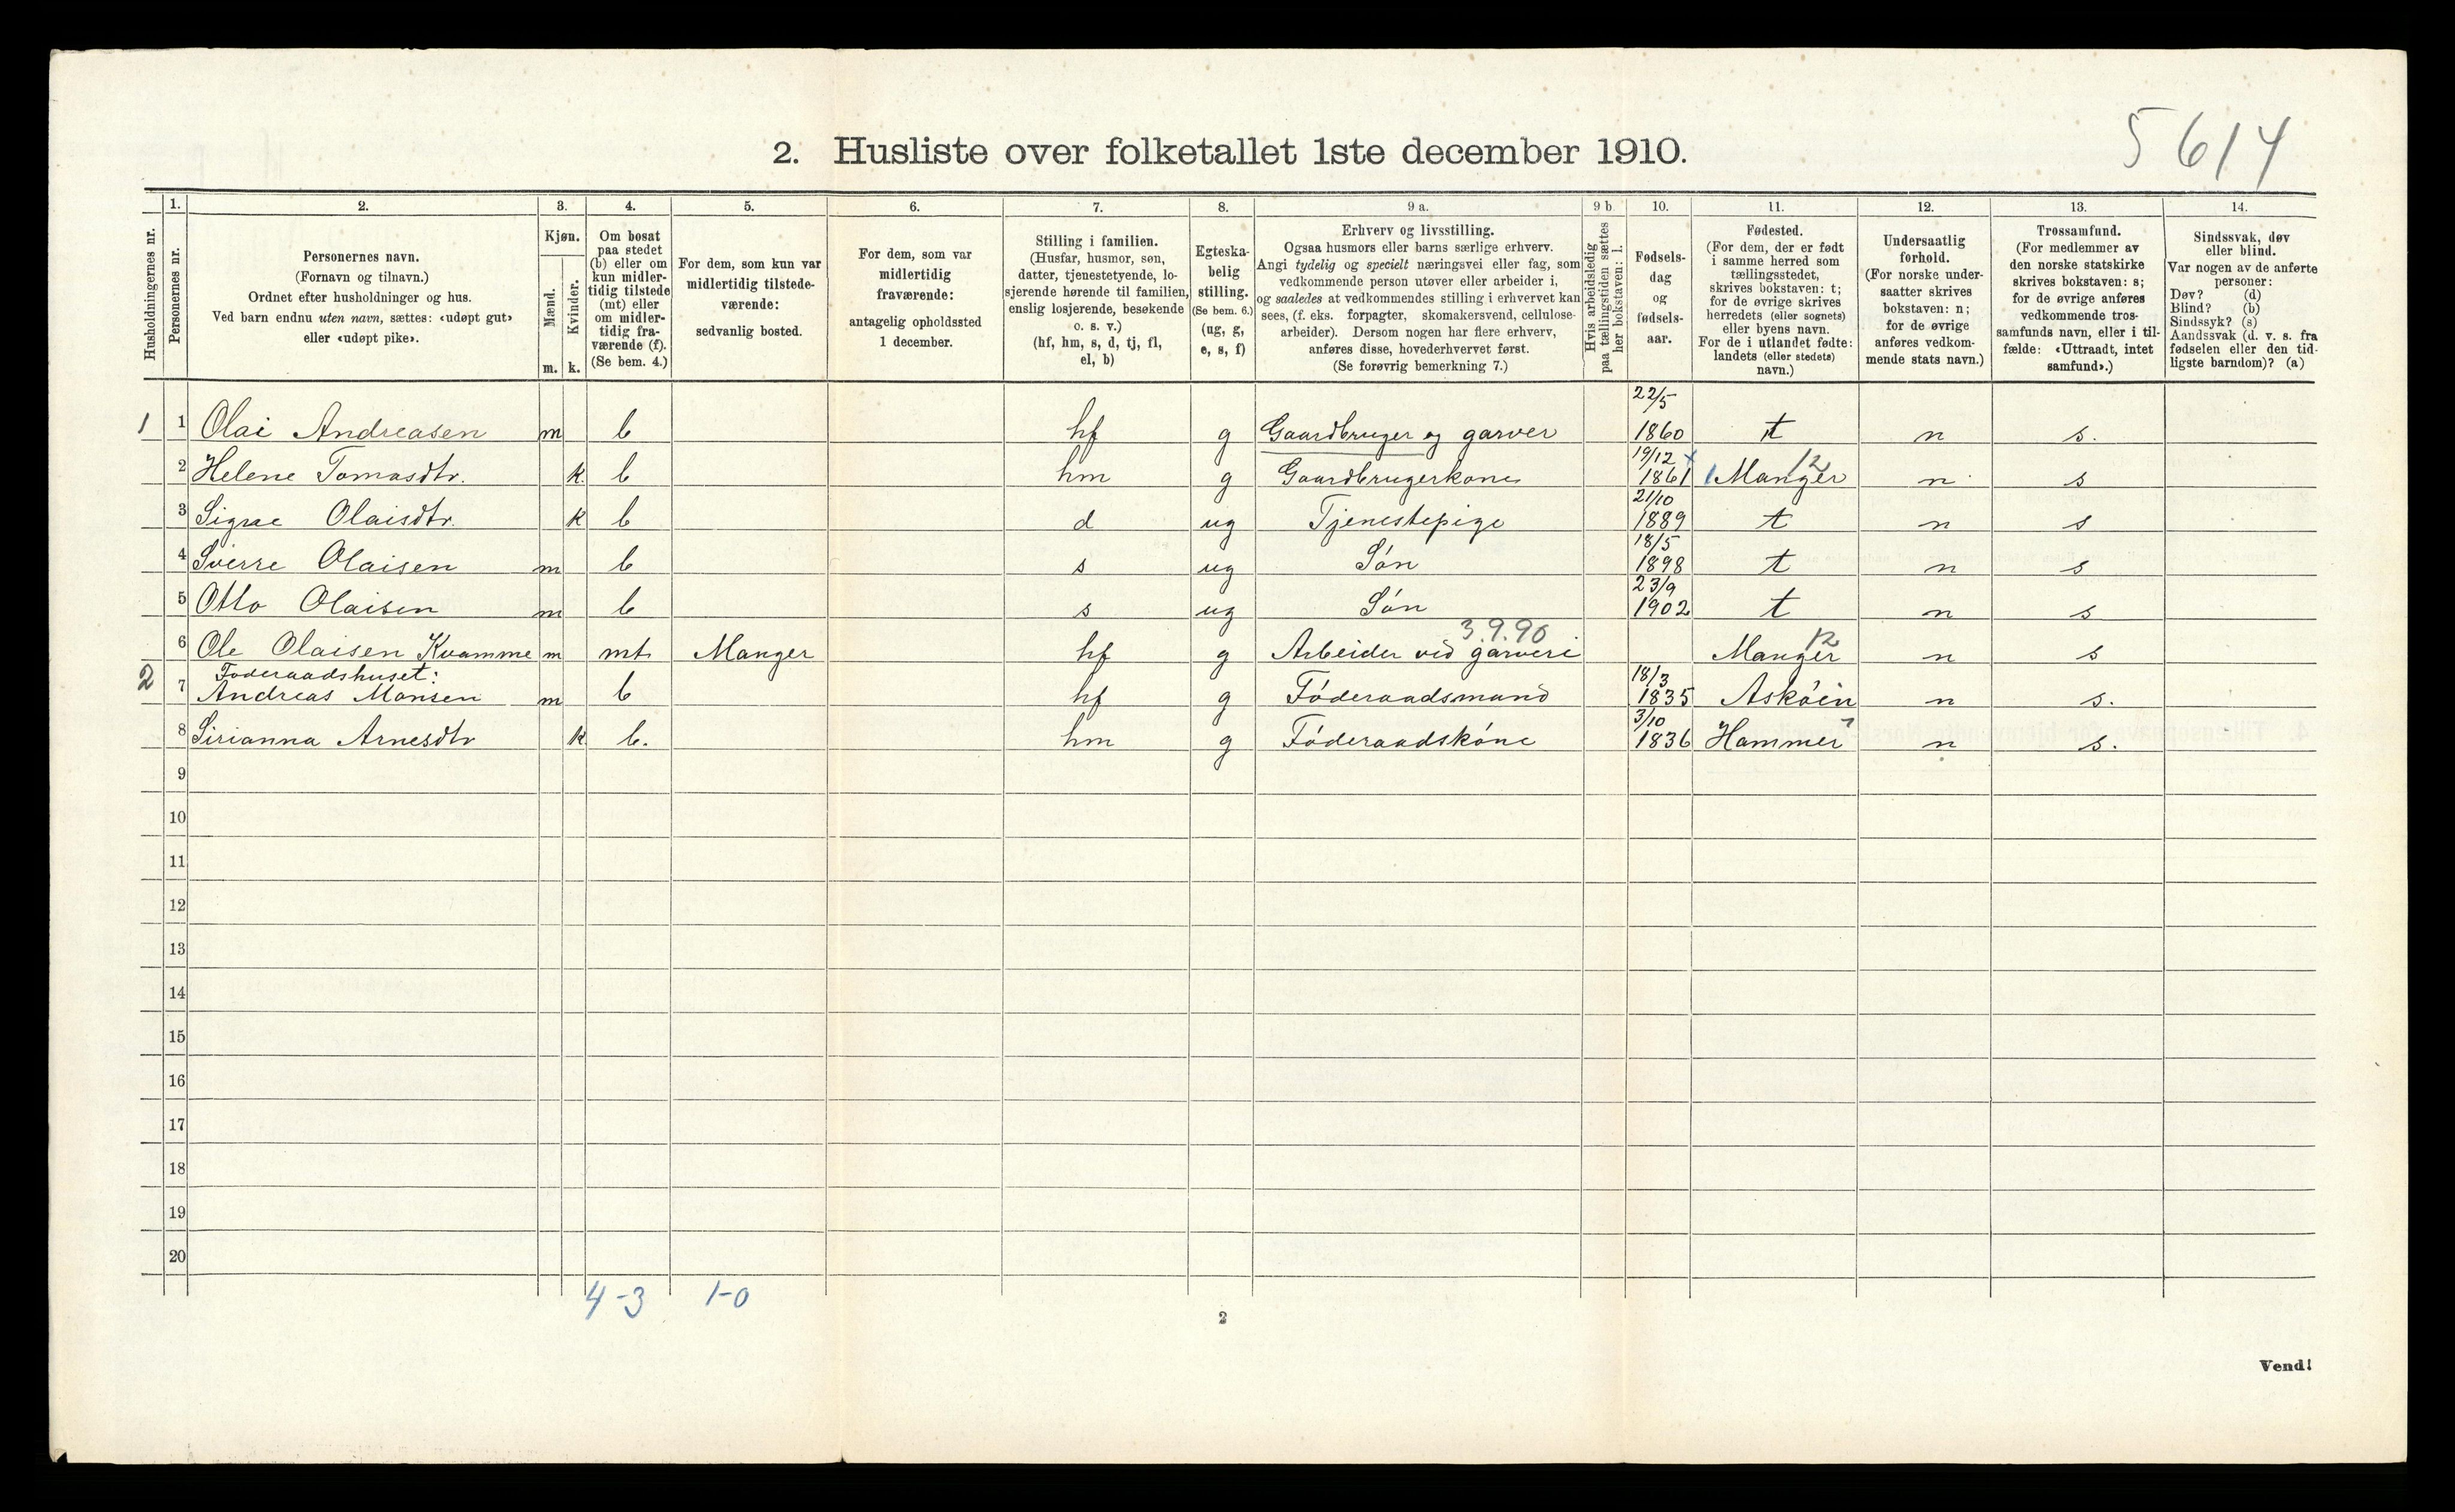 5614
2. Husliste over folketallet 1ste december 1910.
Husholdningernes nr.
1.
Personernes nr.
2.
Personernes navn.
(Fornavn og tilnavn.)
Ordnet efter husholdninger og hus.
Ved barn endnu uten navn, sættes: «udøpt gut»
eller «udøpt pike».
3.
Kjøn.
Mænd.
Kvinder.
m. k.
4.
Om bosat
paa stedet
(b) eller om
kun midler-
tidig tilstede
(mt) eller
om midler-
tidig fra-
værende (f).
(Se bem. 4.)
5.
For dem, som kun var
midlertidig tilstede-
værende:
sedvanlig bosted.
6.
For dem, som var
midlertidig
fraværende:
antagelig opholdssted
1 december.
7.
Stilling i familien.
(Husfar, husmor, søn,
datter, tjenestetyende, lo-
sjerende hørende til familien,
enslig losjerende, besøkende
o. s. v.)
(hf, hm, s, d, tj, fl,
el, b)
8.
Egteska-
belig
stilling.
(Se bem. 6.)
(ug, g,
e, s, f)
9 a.
Erhverv og livsstilling.
Ogsaa husmors eller barns særlige erhverv.
Angi tydelig og specielt næringsvei eller fag, som
vedkommende person utøver eller arbeider i,
og saaledes at vedkommendes stilling i erhvervet kan
sees, (f. eks. forpagter, skomakersvend, cellulose-
arbeider). Dersom nogen har flere erhverv,
anføres disse, hovederhvervet først.
(Se forøvrig bemerkning 7.)
9 b
Hvis arbeidsledig
paa tællingstiden sættes
her bokstaven: l.
10.
Fødsels-
dag
og
fødsels-
aar.
11.
Fødested.
(For dem, der er født
i samme herred som
tællingsstedet,
skrives bokstaven: t;
for de øvrige skrives
herredets (eller sognets)
eller byens navn.
For de i utlandet fødte:
landets (eller stedets)
navn.)
12.
Undersaatlig
forhold.
(For norske under-
saatter skrives
bokstaven: n;
for de øvrige
anføres vedkom-
mende stats navn.)
13.
Trossamfund.
(For medlemmer av
den norske statskirke
skrives bokstaven: s;
for de øvrige anføres
vedkommende tros-
samfunds navn, eller i til-
fælde: «Uttraadt, intet
samfund».)
14.
Sindssvak, døv
eller blind.
Var nogen av de anførte
personer:
Døv? (d)
Blind? (b)
Sindssyk? (s)
Aandssvak (d. v. s. fra
fødselen eller den tid-
ligste barndom)? (a)
1 1 Olai Andreasen m b hf g Gaardbruger og garver 22/5 1860 t n s.
2 Helene Tomasdtr. k. b hm g Gaardbrugerkone 19/12 1861 Manger 12 n s
3 Signe Olaisdtr. k b d ug Tjenestepige 21/10 1889 t n s
4 Sverre Olaisen m b s ug Søn 18/5 1898 t n s
5 Otto Olaisen m b s ug Søn 23/9 1902 t n s
6 Ole Olaisen Kvamme m mt Manger hf g Arbeider ved garveri 3.9.90 Manger 12 n s
2 Føderaadshuset:
7 Andreas Monsen m b hf g Føderaadsmand 18/3 1835 Askøen n s.
8 Sirianna Arnesdtr k b. hm g Føderaadskone 3/10 1836 Hammer n s.
9
10
11
12
13
14
15
16
17
18
19
20
4-3 1-0
2
Vend!